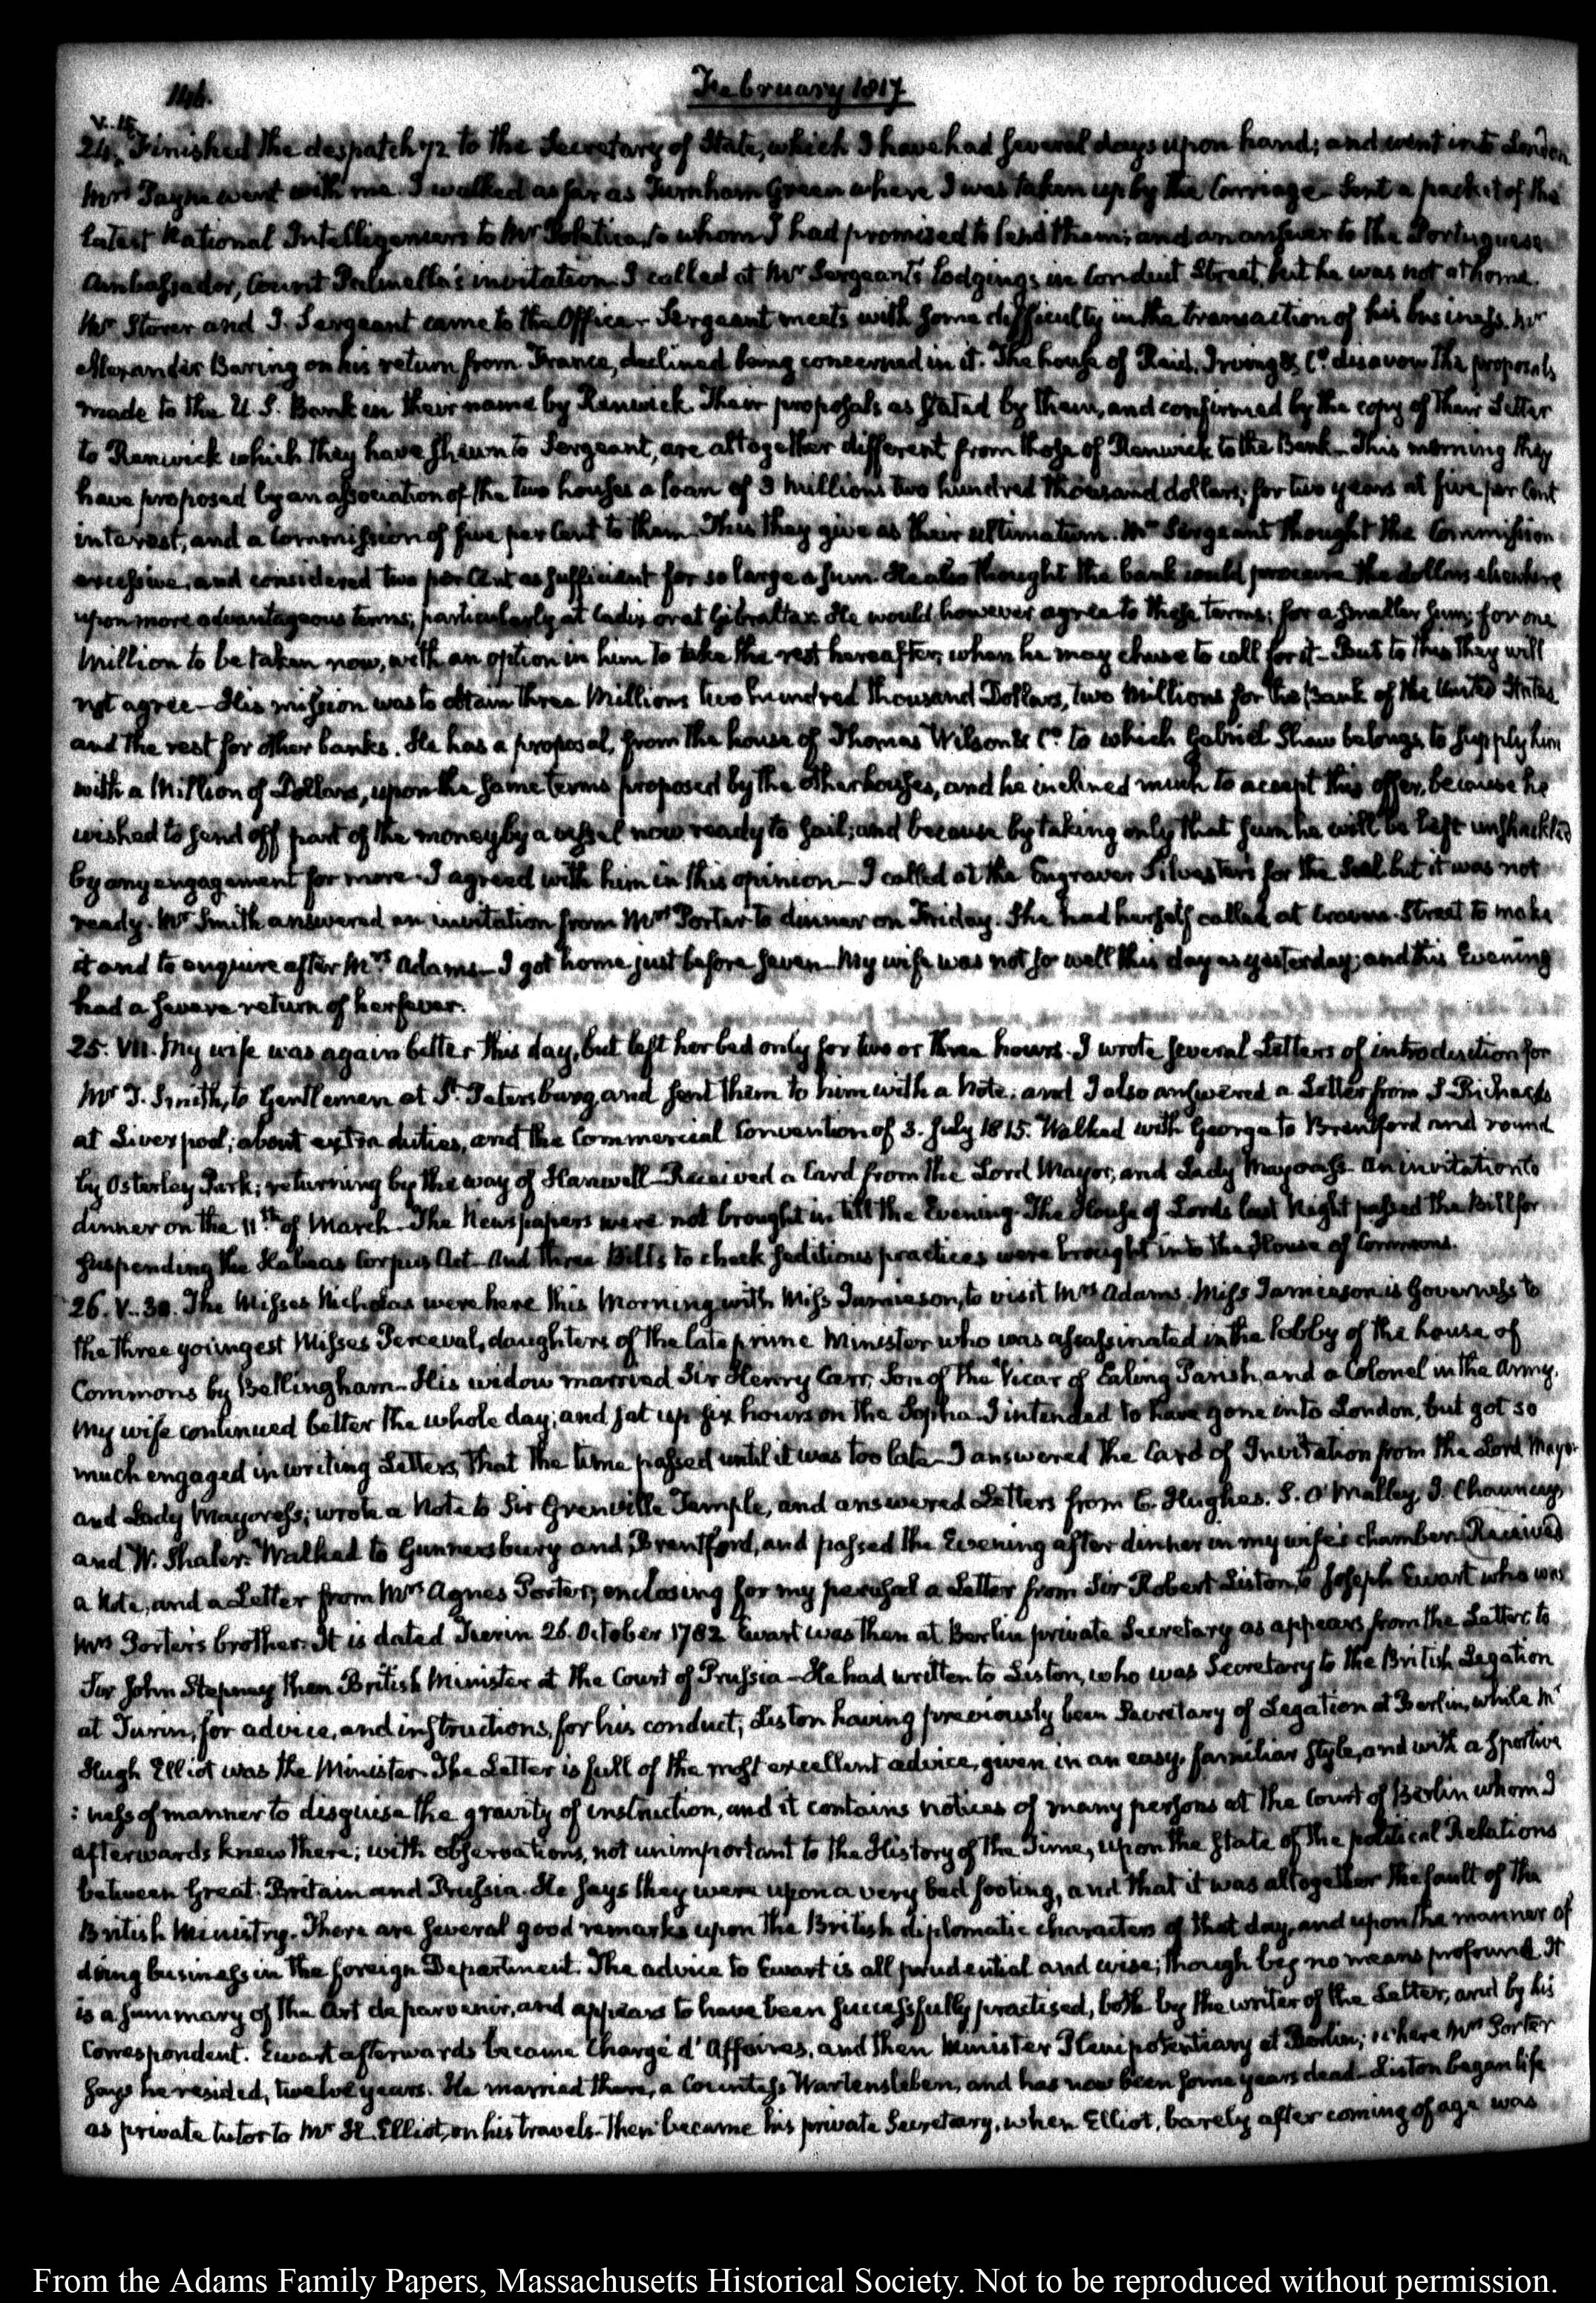 146.
February 1817
V. 15.
24. Finished the despatch 72 to the Secretary of State, which I have had several days upon hand; and went into London.
Mrs Payne went with me. I walked as far as Turnham Green where I was taken up by the Carriage. Sent a packet of the
latest National Intelligencers to Mr Poletica, to whom I had promised to lend them; and an answer to the Portuguese
Ambassador, Count Palmella's invitation. I called at Mr Sergeant's Lodgings in Conduit Street, but he was not at home.
Mr Storer and J. Sergeant came to the Office. Sergeant meets with some difficulty in the transaction of his business. Mr
Alexander Baring on his return from France, declined being concerned in it. The house of Reid, Irving & Co. disavow the proposals
made to the U.S. Bank in their name by Renwick. Their proposals as stated by them, and confirmed by the copy of their Letter
to Renwick which they have shewn to Sergeant, are altogether different from those of Renwick to the Bank—This morning they
have proposed by an association of the two houses a loan of 3 Millions two hundred thousand dollars; for two years at five per Cent
interest, and a Commission of five per Cent to them. This they give as their ultimatum. Mr Sergeant thought the Commission
excessive, and considered two per Cent as sufficient for so large a sum. He also thought the bank could procure the dollars elsewhere
upon more advantageous terms; particularly at Cadiz or at Gibraltar. He would however agree to these terms; for a smaller sum; for one
Million to be taken now, with an option in him to take the rest hereafter, when he may chuse to call for it—But to this they will
not agree—His mission was to obtain three Millions two hundred thousand Dollars, two Millions for the Bank of the United States,
and the rest for other banks. He has a proposal, from the house of Thomas Wilson & Co. to which Gabriel Shaw belongs, to supply him
with a Million of Dollars, upon the same terms proposed by the other houses, and he inclined much to accept this offer, because he
wished to send off part of the money by a vessel now ready to sail; and because by taking only that sum he will be left unshackled
by any engagement for more. I agreed with him in this opinion—I called at the Engraver Silvester's for the Seal but it was not
ready. Mr Smith answered an invitation from Mrs Porter to dinner on Friday. She had herself called at Craven Street to make
it and to enquire after Mrs Adams—I got home just before seven—My wife was not so well this day as yesterday; and this Evening
had a severe return of her fever.
25. VII. My wife was again better this day, but left her bed only for two or three hours. I wrote several Letters of introduction for
Mr J. Smith, to Gentlemen at St. Petersburg, and sent them to him with a Note; and I also answered a Letter from S Richards
at Liverpool; about extra duties, and the Commercial Convention of 3. July 1815. Walked with George to Brentford and round
by Osterley Park; returning by the way of Hanwell—Received a Card from the Lord Mayor, and Lady Mayoress—an invitation to
dinner on the 11th of March—The Newspapers were not brought in till the Evening. The House of Lords last Night passed the Bill for
suspending the Habeas Corpus Act—And three Bills to check seditious practices were brought into the House of Commons.
26. V. 30. The Misses Nicholas were here this Morning with Miss Jamieson, to visit Mrs Adams. Miss Jamieson is Governess to
the three youngest Misses Perceval, daughters of the late prime Minister who was assassinated in the lobby of the house of
Commons by Bellingham—His widow married Sir Henry Carr, Son of the Vicar of Ealing Parish, and a Colonel in the Army.
My wife continued better the whole day; and sat up six hours on the Sopha. I intended to have gone into London, but got so
much engaged in writing Letters, that the time passed until it was too late—I answered the Card of Invitation from the Lord Mayor
and Lady Mayoress; wrote a Note to Sir Grenville Temple, and answered Letters from C. Hughes. S. O'Malley, I. Chauncey,
and W. Shaler. Walked to Gunnersbury and Brentford, and passed the Evening after dinner in my wife's chamber. Received
a Note, and a Letter from Mrs Agnes Porter, enclosing for my perusal a Letter from Sir Robert Liston, to Joseph Ewart who was
Mrs Porter's brother. It is dated Turin 26. October 1782. Ewart was then at Berlin private Secretary as appears from the Letter, to
Sir John Stepney then British Minister at the Court of Prussia—He had written to Liston, who was Secretary to the British Legation
at Turin, for advice, and instructions, for his conduct; Liston having previously been Secretary of Legation at Berlin, while Mr
Hugh Elliot was the Minister. The Letter is full of the most excellent advice, given in an easy, familiar style, and with a sportive
:ness of manner to disguise the gravity of instruction, and it contains notices of many persons at the Court of Berlin whom I
afterwards knew there; with observations, not unimportant to the History of the Time, upon the state of the political Relations
between Great-Britain and Prussia. He says they were upon a very bad footing, and that it was altogether the fault of the
British Ministry. There are several good remarks upon the British diplomatic characters of that day, and upon the manner of
doing business in the foreign Department. The advice to Ewart is all prudential and wise; though by no means profound. It
is a summary of the Art de parvenir, and appears to have been successfully practised, both by the writer of the Letter, and by his
Correspondent. Ewart afterwards became Chargé d'Affaires, and then Minister Plenipotentiary at Berlin; where Mrs Porter
says he resided, twelve years. He married there, a Countess Wartensleben, and has now been some years dead—Liston began life
as private tutor to Mr H. Elliot, on his travels—then became his private Secretary, when Elliot, barely after coming of age was
From the Adams Family Papers, Massachusetts Historical Society. Not to be reproduced without permission.